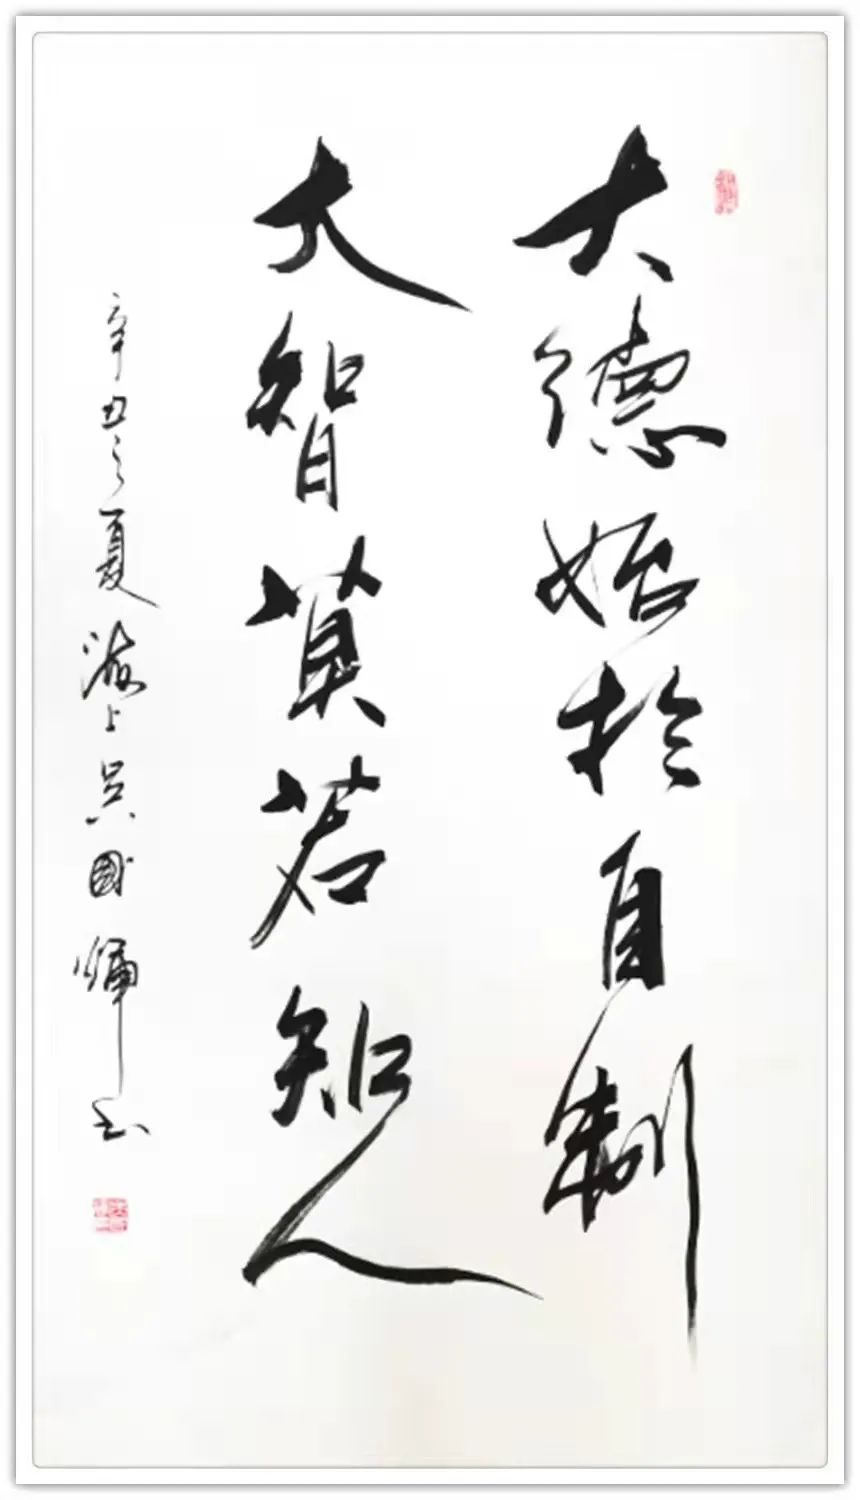 大德始於自制
大智莫若知人
辛丑之夏海上吴國煇书